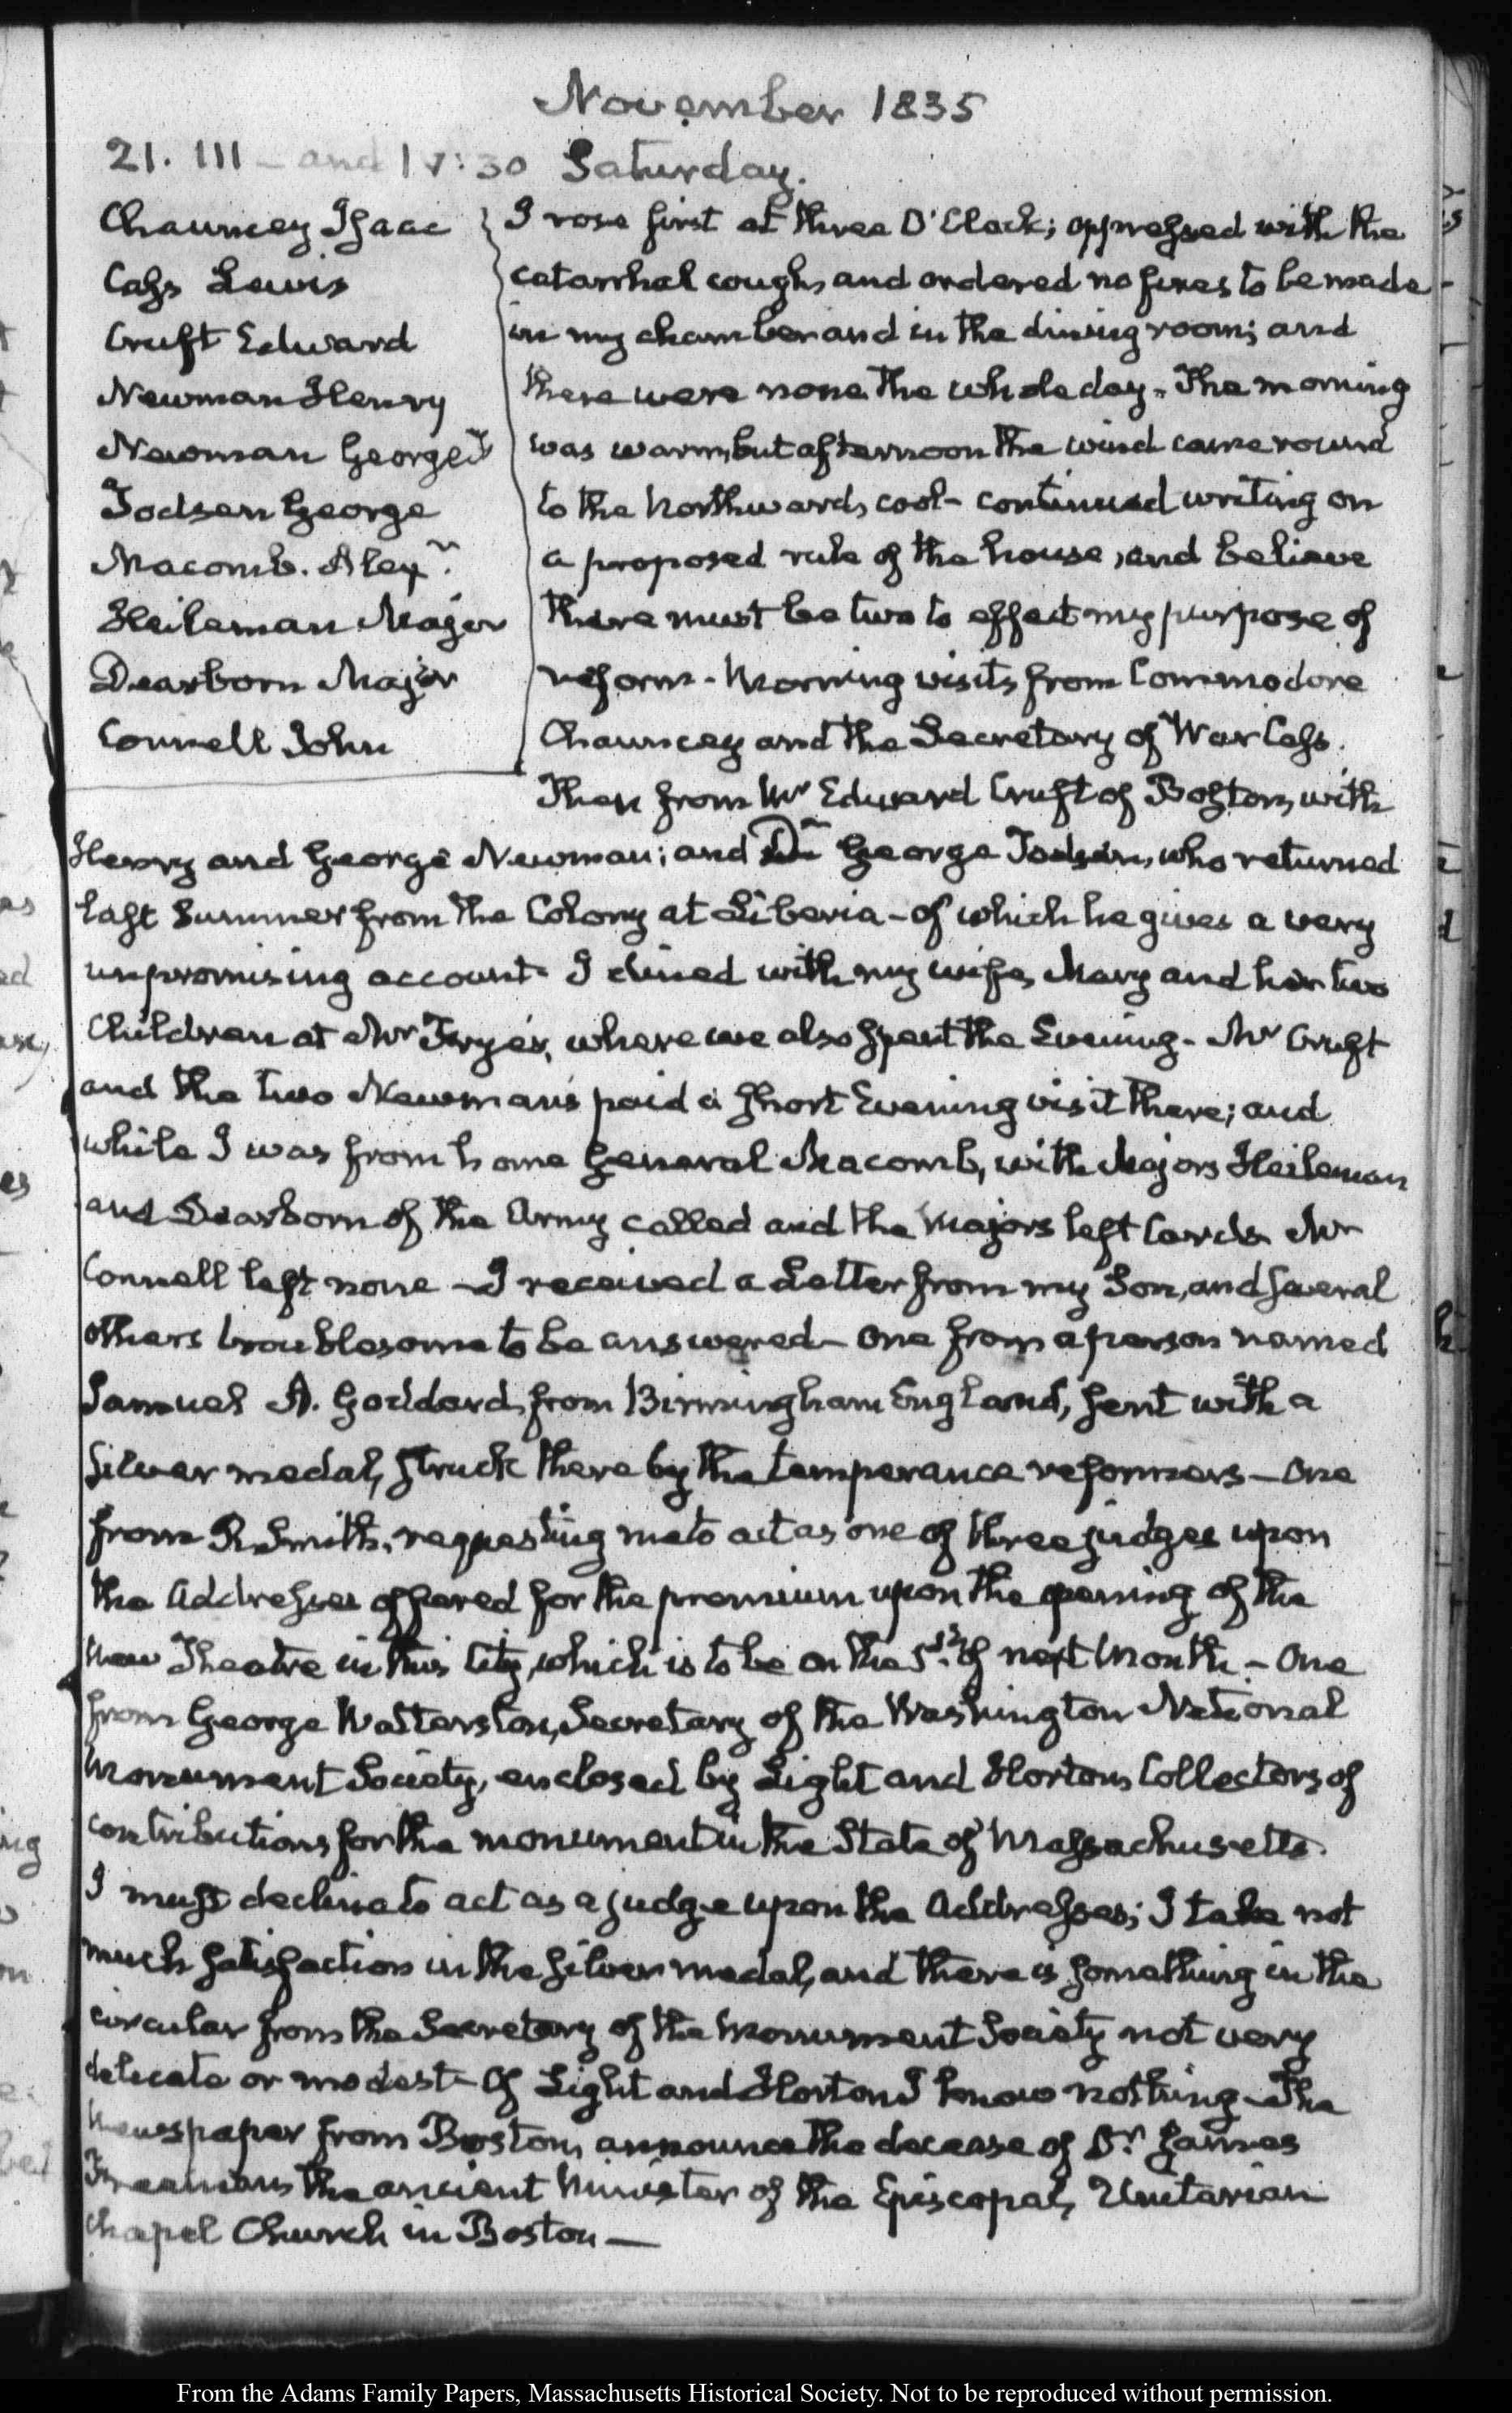 November 1835
21. III – and IV:30 Saturday.
Chauncey Isaac
Cass Lewis
Cruft Edward
Newman Henry
Newman George
Todsen George
Macomb. Alexr.
Heileman Major
Dearborn Major
Connell John
I rose first at three O'Clock; oppressed with the
catarrhal cough, and ordered no fires to be made
in my chamber and in the dining room; and
there were none the whole day. The morning
was warm, but afternoon the wind came round
to the Northward, cool – continued writing on
a proposed rule of the house, and believe
there must be two to effect my purpose of
reform. Morning visits from Commodore
Chauncey and the Secretary of War Cass.
Then from Mr Edward Cruft of Boston, with
Henry and George Newman; and Dr George Todsen, who returned
last Summer from the Colony at Liberia – of which he gives a very
unpromising account. I dined with my wife, Mary and her two
Children at Mr Frye's, where we also spent the Evening. Mr Cruft
and the two Newmans paid a short Evening visit there; and
while I was from home General Macomb, with Majors Heileman
and Dearborn of the Army called and the Majors left Cards Mr
Connell left none – I received a Letter from my Son, and several
others troublesome to be answered – One from a person named
Samuel A. Goddard, from Birmingham England, sent with a
silver medal, struck there by the temperance reformers – One
from R. Smith, requesting me to act as one of three judges upon
the Addresses offered for the premium upon the opening of the
new Theatre in this City, which is to be on the 1st. of next Month. – One
from George Watterston, Secretary of the Washington National
Monument Society, enclosed by Light and Horton, Collectors of
contributions for the monument in the State of Massachusetts.
I must decline to act as a judge upon the Addresses; I take not
much satisfaction in the silver medal, and there is something in the
circular from the Secretary of the Monument Society not very
delicate or modest – Of Light and Horton I know nothing – The
Newspaper from Boston, announce the decease of Dr. James
Freeman, the ancient Minister of the Episcopal, Unitarian
Chapel Church in Boston —
From the Adams Family Papers, Massachusetts Historical Society. Not to be reproduced without permission.